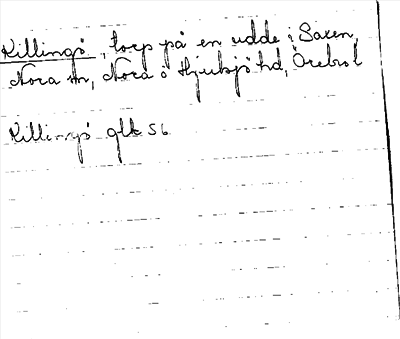 Killingsö, torp på en udde i Saxen,
Nora sn, Nora o Hjulsjö hd, Örebro l
Killingsö glk 56